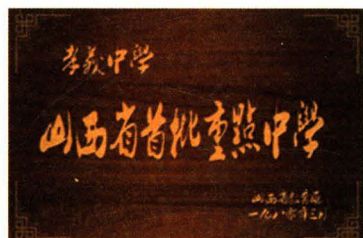 孝義中學
山西省首批重點中學
山西省教育厅
一九八〇年三月